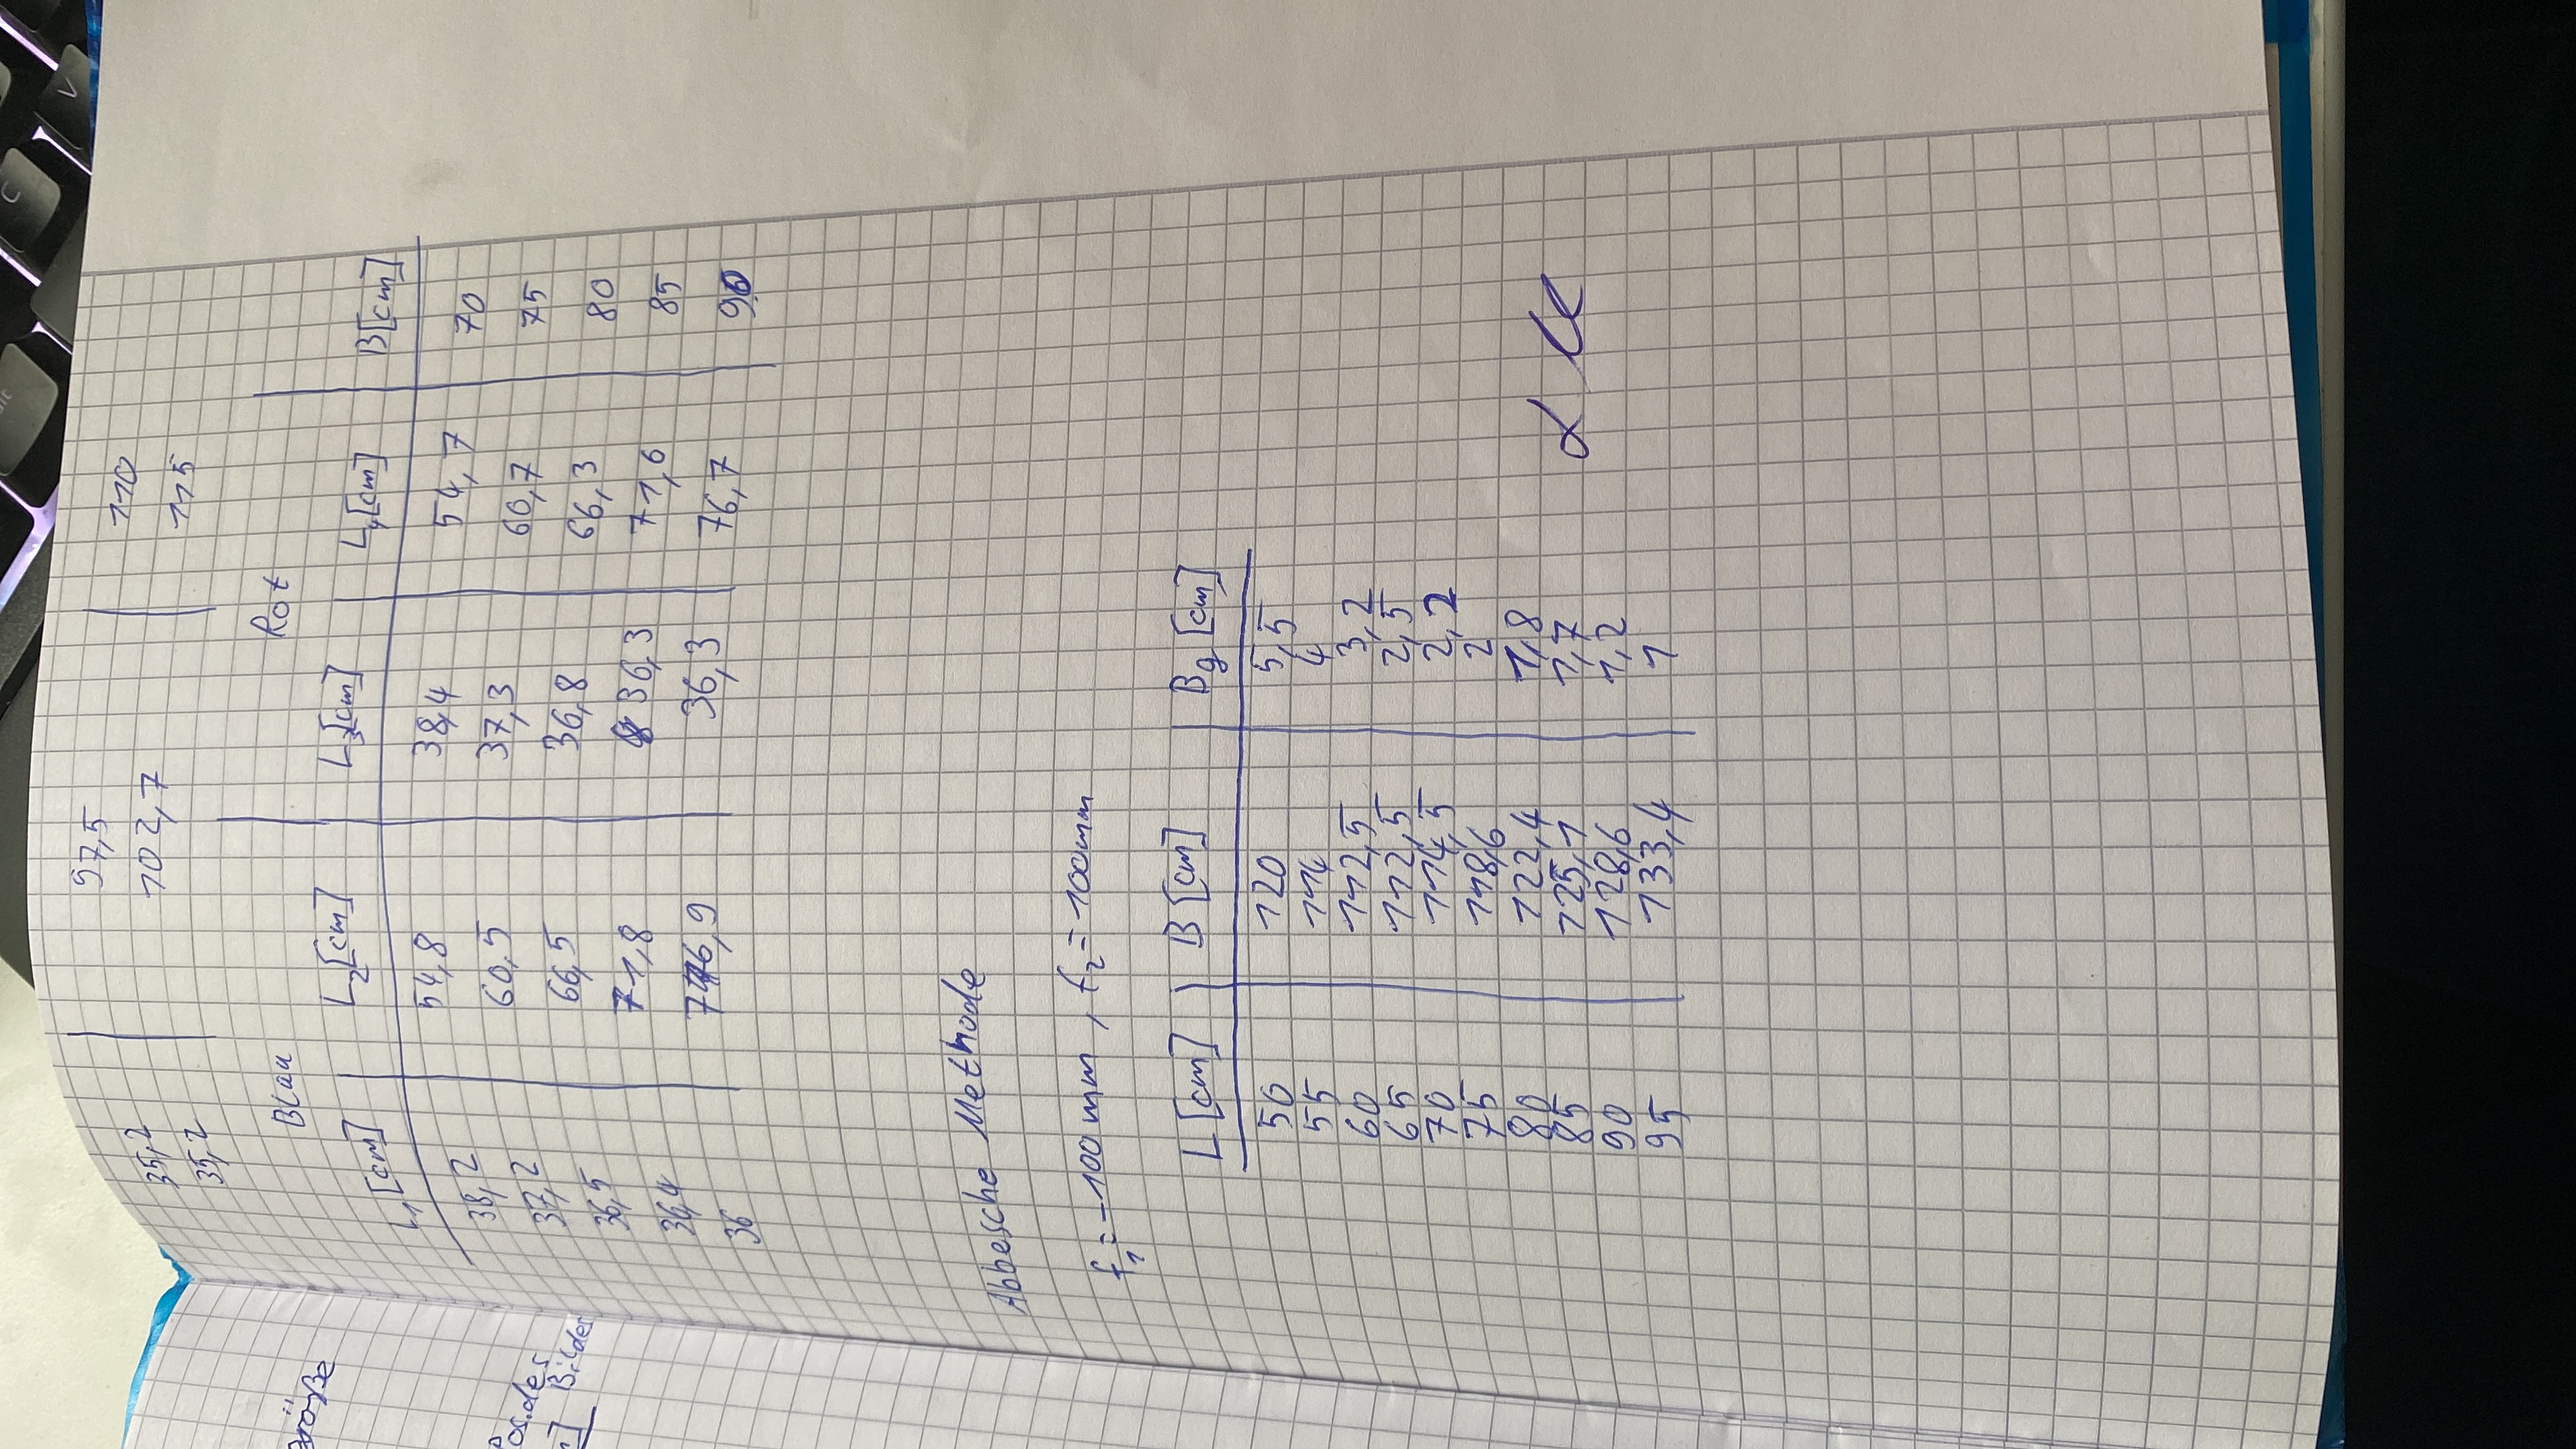 größe
Pos.des
Bildes
35,2 97,5 110
35,2 102,7 115
Blau Rot
L1 [cm] L2 [cm] L3 [cm] L4 [cm] B [cm]
38,2 54,8 38,4 54,7 70
37,2 60,5 37,3 60,7 75
36,5 66,5 36,8 66,3 80
36,4 71,8 36,3 71,6 85
36 76,9 36,3 76,7 90
Abbesche Methode
f1 = -100 mm, f2 = 100mm
L [cm] B [cm] Bg [cm]
50 120 5,5
55 114 4
60 112,5 3,2
65 112,5 2,5
70 114,5 2,2
75 118,6 2
80 122,4 1,8
85 125,1 1,7
90 128,6 1,2
95 133,4 1